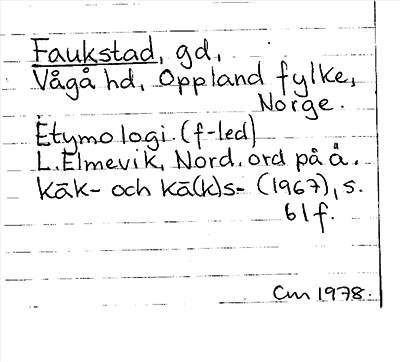 Faukstad, gd,
Vågå hd, Oppland fylke,
Norge.
Etymologi (f-led)
L. Elmevik, Nord. ord på å.
kāk- och kā(k)s- (1967), s.
61f.
Cm 1978.